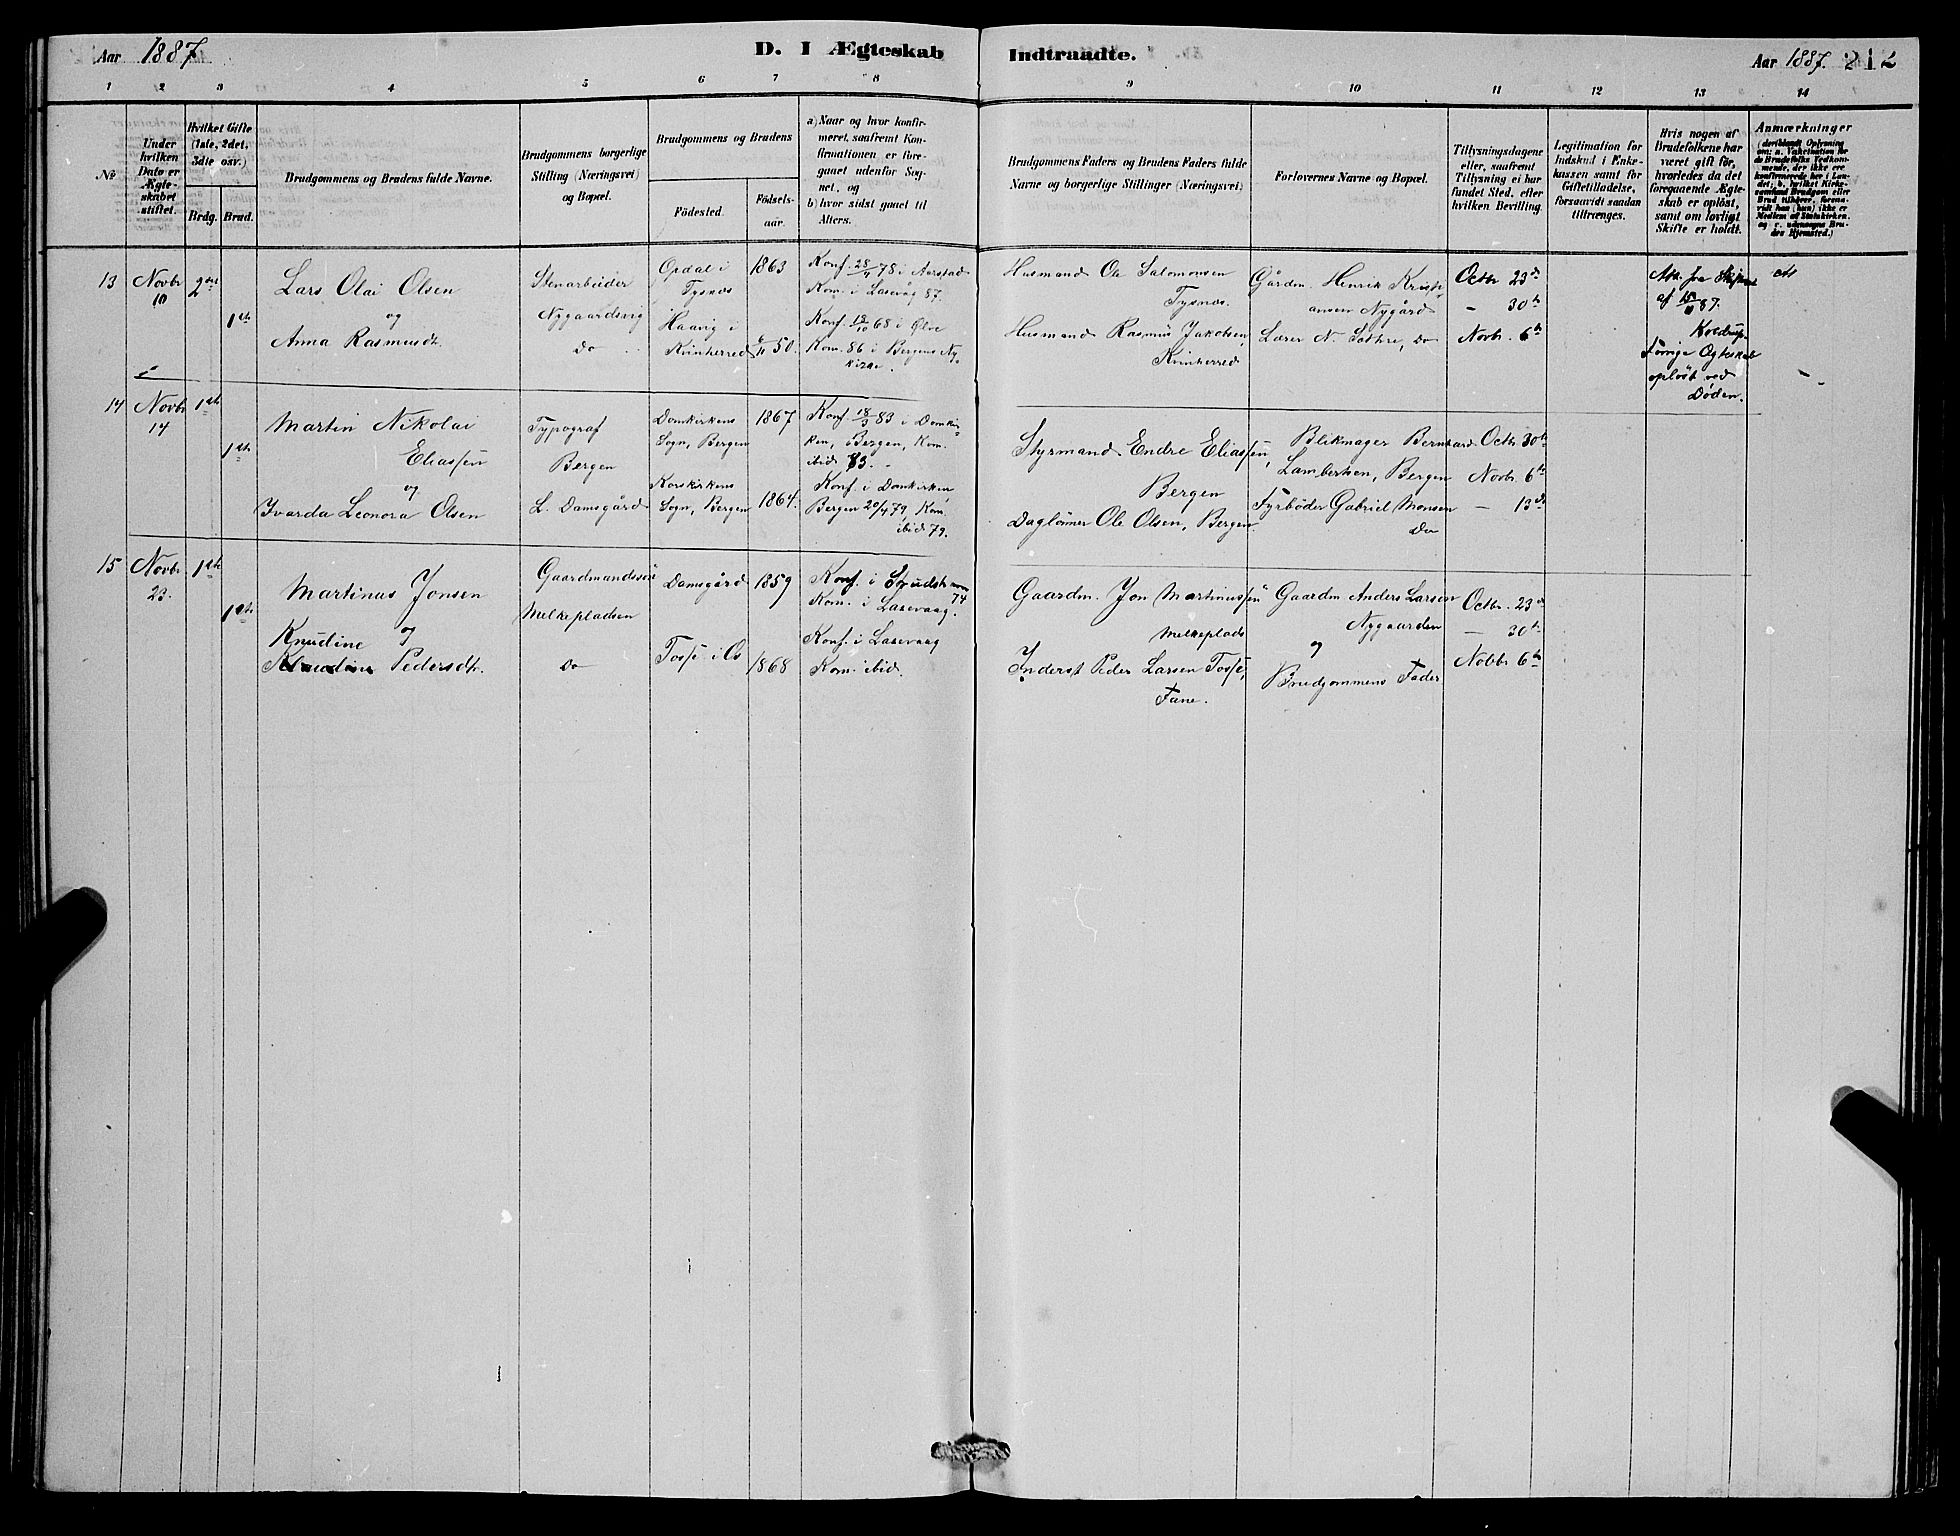 Aar 1887.
D. I Ægteskab Indtraadte.
Aar 1887. 212
1 2 3 4 5 6 7 8 9 10 11 12 13 14
No
Under hvilken Dato er Ægteskabet stiftet.
Hvilket Gifte (1ste, 2det, 3die osv.)
Brdg. Brud.
Brudgommens og Brudens fulde Navne.
Brudgommens borgerlige Stilling (Næringsvei) og Bopæl.
Brudgommens og Brudens
Födested.
Födsels-aar.
a) Naar og hvor konfirmeret, saafremt Konfirmationen er foregaaet udenfor Sognet, og
b) hvor sidst gaaet til Alters.
Brudgommens Faders og Brudens Faders fulde Navne og borgerlige Stillinger (Næringsvei)
Forlovernes Navne og Bopæl.
Tillysningsdagene eller, saafremt Tillysning ei har fundet Sted, efter hvilken Bevilling.
Legitimation for Indskud i Enkekassen samt for Giftetilladelse, forsaavidt saadan tiltrænges.
Hvis nogen af Brudefolkene har været gift för, hvorledes da det foregaaende Ægteskab er oplöst, samt om lovligt Skifte er holdt.
Anmærkninger
(deriblandt Oplysning om: a. Vakcination for de Brudefolks Vedkommende, der ikke ere konfirmerede her i Landet; b. hvilket Kirkesamfund Brudgom eller Brud tilhører, forsaavidt han (hun) ikke er Medlem af Statskirken, og c. udensogns Brudes Hjemsted.)
13
Novbr 10
2det
1ste
Lars Olai Olsen
og
Anna Rasmusdt.
Stenarbeider
Nygaardsvig
do
Opdal i
Tysnæs
Haavig i
Kvinherred
1863
6/11 50.
Konf. 28/4 78 i Aarstad
Kom. i Laxevåg 87.
Konf. 18/10 68 i Ølve
Kom. 86 i Bergens Nykirke.
Husmand Ole Salomonsen
Tysnæs.
Husmand Rasmus Jakobsen,
Kvinherred
Gårdm. Henrik Kristiansen Nygård
Lærer N. Sæthre, do
Octbr 23de
— 30te
Novbr. 6te
Att. fra Skifteret
af 15/9 87.
Forrige Ægteskab
opløst ved
Døden.
14
Novbr 14
1ste
1ste
Martin Nikolai
Eliassen
og
Ivarda Leonora Olsen
Typograf
Bergen
L. Damsgård
Domkirkens
Sogn, Bergen
Korskirkens
Sogn, Bergen
1867
1864.
Konf. 18/3 83 i Domkirken, Bergen, Kom.
ibid 83.
Konf. i Domkirken
Bergen 20/4 79, Kom.
ibid 79.
Styrmand Endre Eliassen,
Bergen
Dagløner Ole Olsen, Bergen.
Blikmager Bernhard
Lambertsen, Bergen
Fyrbøder Gabriel Monsen
do
Octbr 30te
Novbr 6te
— 13de
15
Novbr 23.
1ste
1ste
Martinus Jonsen
og
Knudine
Knudine Pedersdtr.
Gaardmandssøn
Melkepladsen
do
Damsgård
Tøsse i Os
1859
1868
Konf. i Sundst
74
Kom. i Laxevaag.
Konf. i Laxevaag
Kom. ibid.
Gaardm. Jon Martinussen
Melkeplads
Inderst Peder Larsen Tøsse,
Fane.
Gaardm Anders Larsen
Nygaarden
og
Brudgommens Fader
Octbr. 23de
— 30te
Nobbr 6te